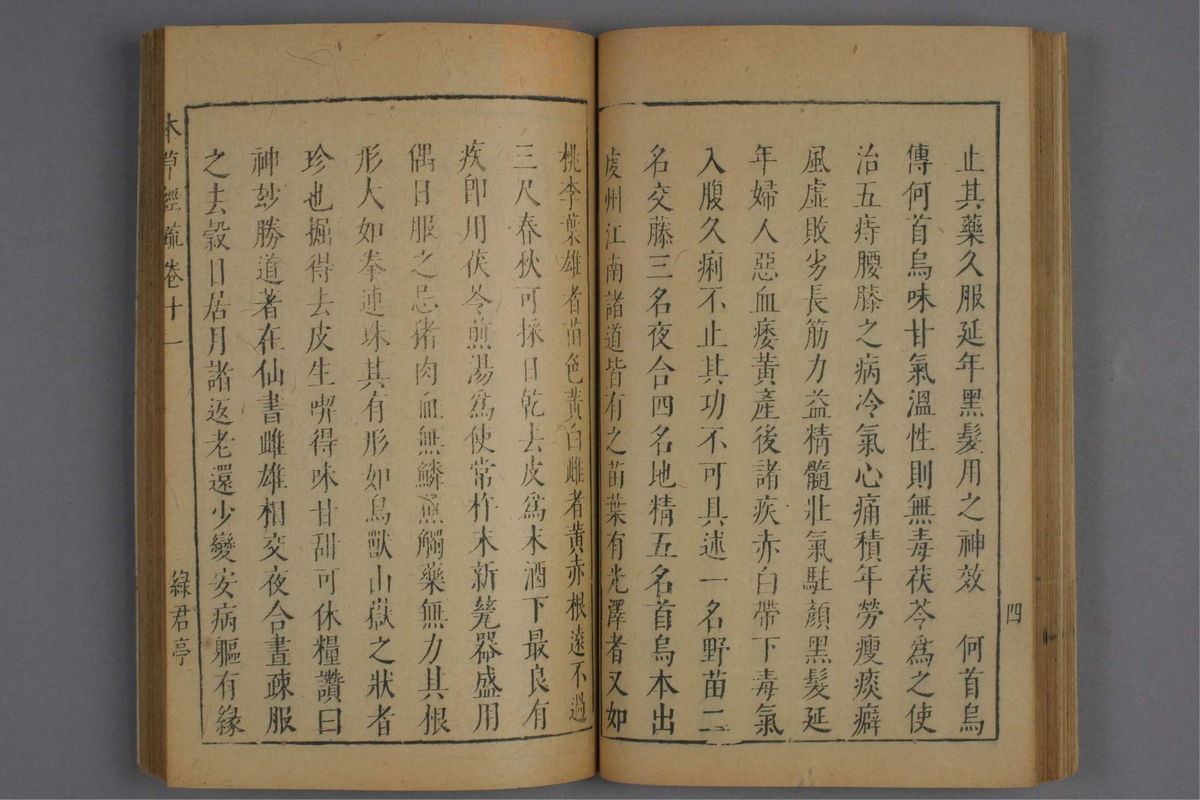 止其藥久服延年黑髮用之神效　何首烏
傳何首烏味甘氣溫性則無毒茯苓爲之使
治五痔腰膝之病冷氣心痛積年勞瘦痰癖
風虛敗劣長筋力益精髓壯氣駐顏黑髮延
年婦人惡血痿黃產後諸疾赤白帶下毒氣
入腹久痢不止其功不可具述一名野苗二
名交藤三名夜合四名地精五名首烏本出
虔州江南諸道皆有之苗葉有光澤者又如
四
桃李葉雄者苗色黃白雌者黃赤根遠不過
三尺春秋可採日乾去皮爲末酒下最良有
疾卽用茯苓煎湯爲使常杵末新甆器盛用
偶日服之忌猪肉血無鱗魚觸藥無力其根
形大如拳連珠其有形如鳥獸山嶽之狀者
珍也掘得去皮生喫得味甘甜可休糧讚曰
神玅勝道著在仙書雌雄相交夜合晝疎服
之去穀日居月諸返老還少變安病軀有緣
本草經疏卷十一
綠君亭